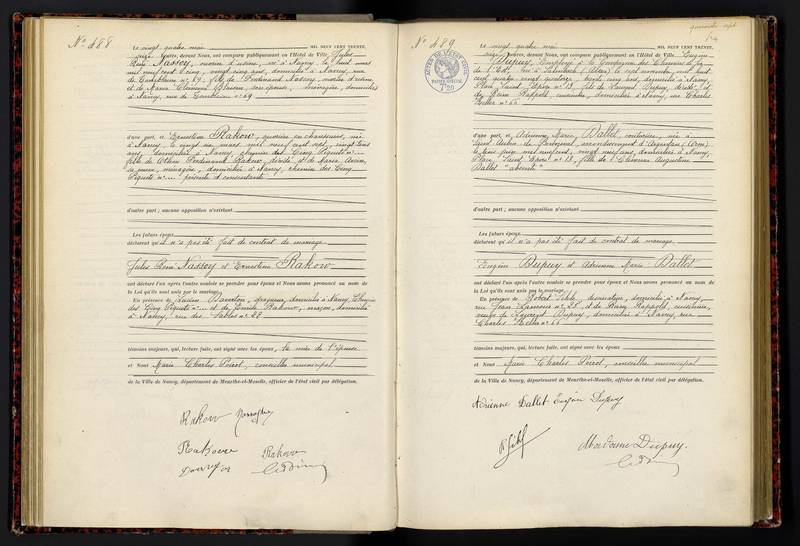 N° 488
Le vingt quatre mai MIL NEUF CENT TRENTE,
heures, devant Nous, ont comparu publiquement en l'Hôtel de Ville Jules
René Nassoy, ouvrier d'usine, né à Nancy le huit mars
mil neuf cent cinq, vingt cinq ans, domicilié à Nancy, rue
de n° 49, fils de Ferdinand Nassoy, ouvrier d'usine,
et de Marie son épouse, ménagère, domiciliés
à Nancy, rue de n° 49
d'une part, et Ernestine Rakow, ouvrière en chaussures, née
à Nancy, le vingt un mars mil neuf cent sept, vingt trois
ans, domiciliée à Nancy, chemin des Cinq Piquets n°
fille de Ferdinand Rakow, décédé, et de Marie
sa veuve, ménagère, domiciliée à Nancy, chemin des Cinq
Piquets n° présente et consentante
d'autre part ; aucune opposition n'existant
Les futurs époux
déclarent qu'il n'a pas été fait de contrat de mariage
Jules René Nassoy et Ernestine Rakow
ont déclaré l'un après l'autre vouloir se prendre pour époux et Nous avons prononcé au nom de
la Loi qu'ils sont unis par le mariage.
En présence de Lucien domicilié à Nancy, Chemin
des Cinq Piquets n° et de Emile Rakow, maçon, domicilié
à Nancy, rue des Sables n° 28
témoins majeurs, qui, lecture faite, ont signé avec les époux, la mère de l'épouse
et Nous Marie Charles Poirot, conseiller municipal
de la Ville de Nancy, département de Meurthe-et-Moselle, officier de l'état civil par délégation.
Rakow
Rakow Rakow
N° 489
Le vingt quatre mai MIL NEUF CENT TRENTE,
heures, devant Nous, ont comparu publiquement en l'Hôtel de Ville Eugène
Dupuy, Employé à la Compagnie des Chemins de fer
de l'Est, né à le sept novembre mil huit
cent quatre vingt quatorze, trente cinq ans, domicilié à Nancy,
Place Saint Epvre n° 13, fils de Laurent Dupuy, décédé, et
de Marie Rappold, couturière, domiciliée à Nancy, rue Charles
Keller n° 66
d'une part, et Adrienne Marie Dallet, couturière, née à
Saint Aubin de arrondissement d'Argentan (Orne)
le trois juin mil neuf cent, vingt neuf ans, domiciliée à Nancy,
Place Saint Epvre n° 13, fille de Augustine
Dallet "absente"
d'autre part ; aucune opposition n'existant
Les futurs époux
déclarent qu'il n'a pas été fait de contrat de mariage
Eugène Dupuy et Adrienne Marie Dallet
ont déclaré l'un après l'autre vouloir se prendre pour époux et Nous avons prononcé au nom de
la Loi qu'ils sont unis par le mariage.
En présence de Robert dessinateur, domicilié à Nancy,
rue Jean n° 28 et de Marie Rappold, couturière,
veuve de Laurent Dupuy, domiciliée à Nancy, rue
Charles Keller n° 66
témoins majeurs, qui, lecture faite, ont signé avec les époux
et Nous Marie Charles Poirot, conseiller municipal
de la Ville de Nancy, département de Meurthe-et-Moselle, officier de l'état civil par délégation.
Adrienne Dallet Eugène Dupuy
Madame Dupuy